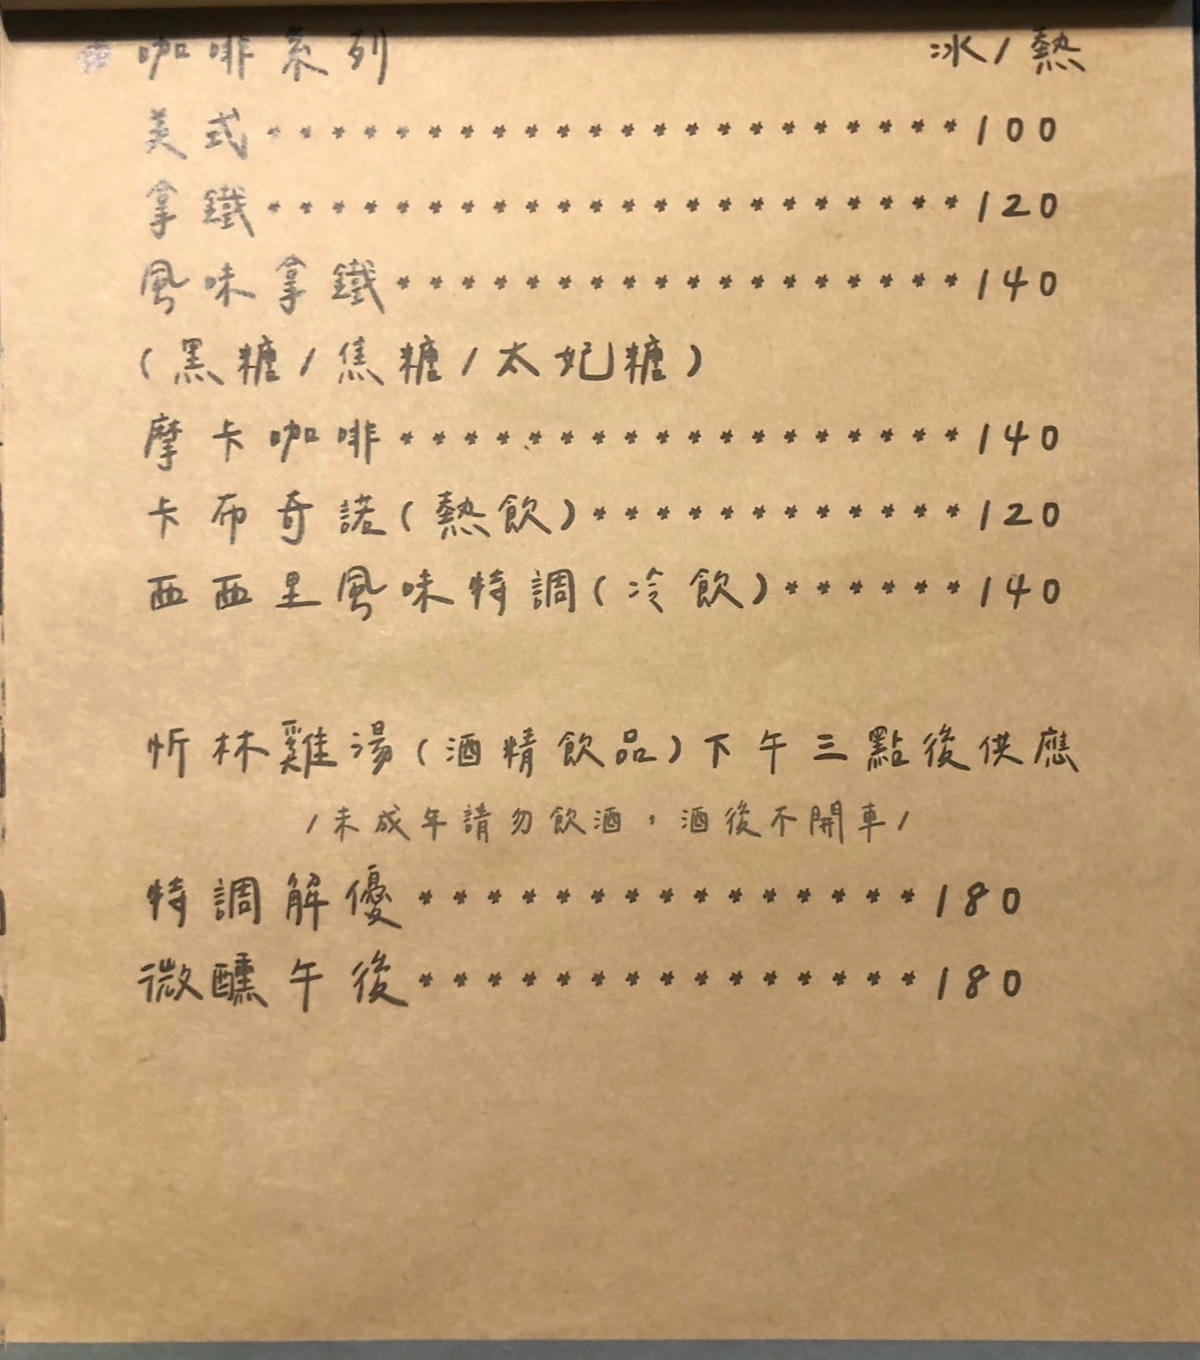 咖啡系列 冰/熱
美式**********************100
拿鐵**********************120
風味拿鐵******************140
(黑糖/焦糖/太妃糖)
摩卡咖啡******************140
卡布奇諾(熱飲)************120
西西里風味特調(冷飲)******140
忻林雞湯(酒精飲品)下午三點後供應
/未成年請勿飲酒，酒後不開車/
特調解優***************180
微醺午後***************180